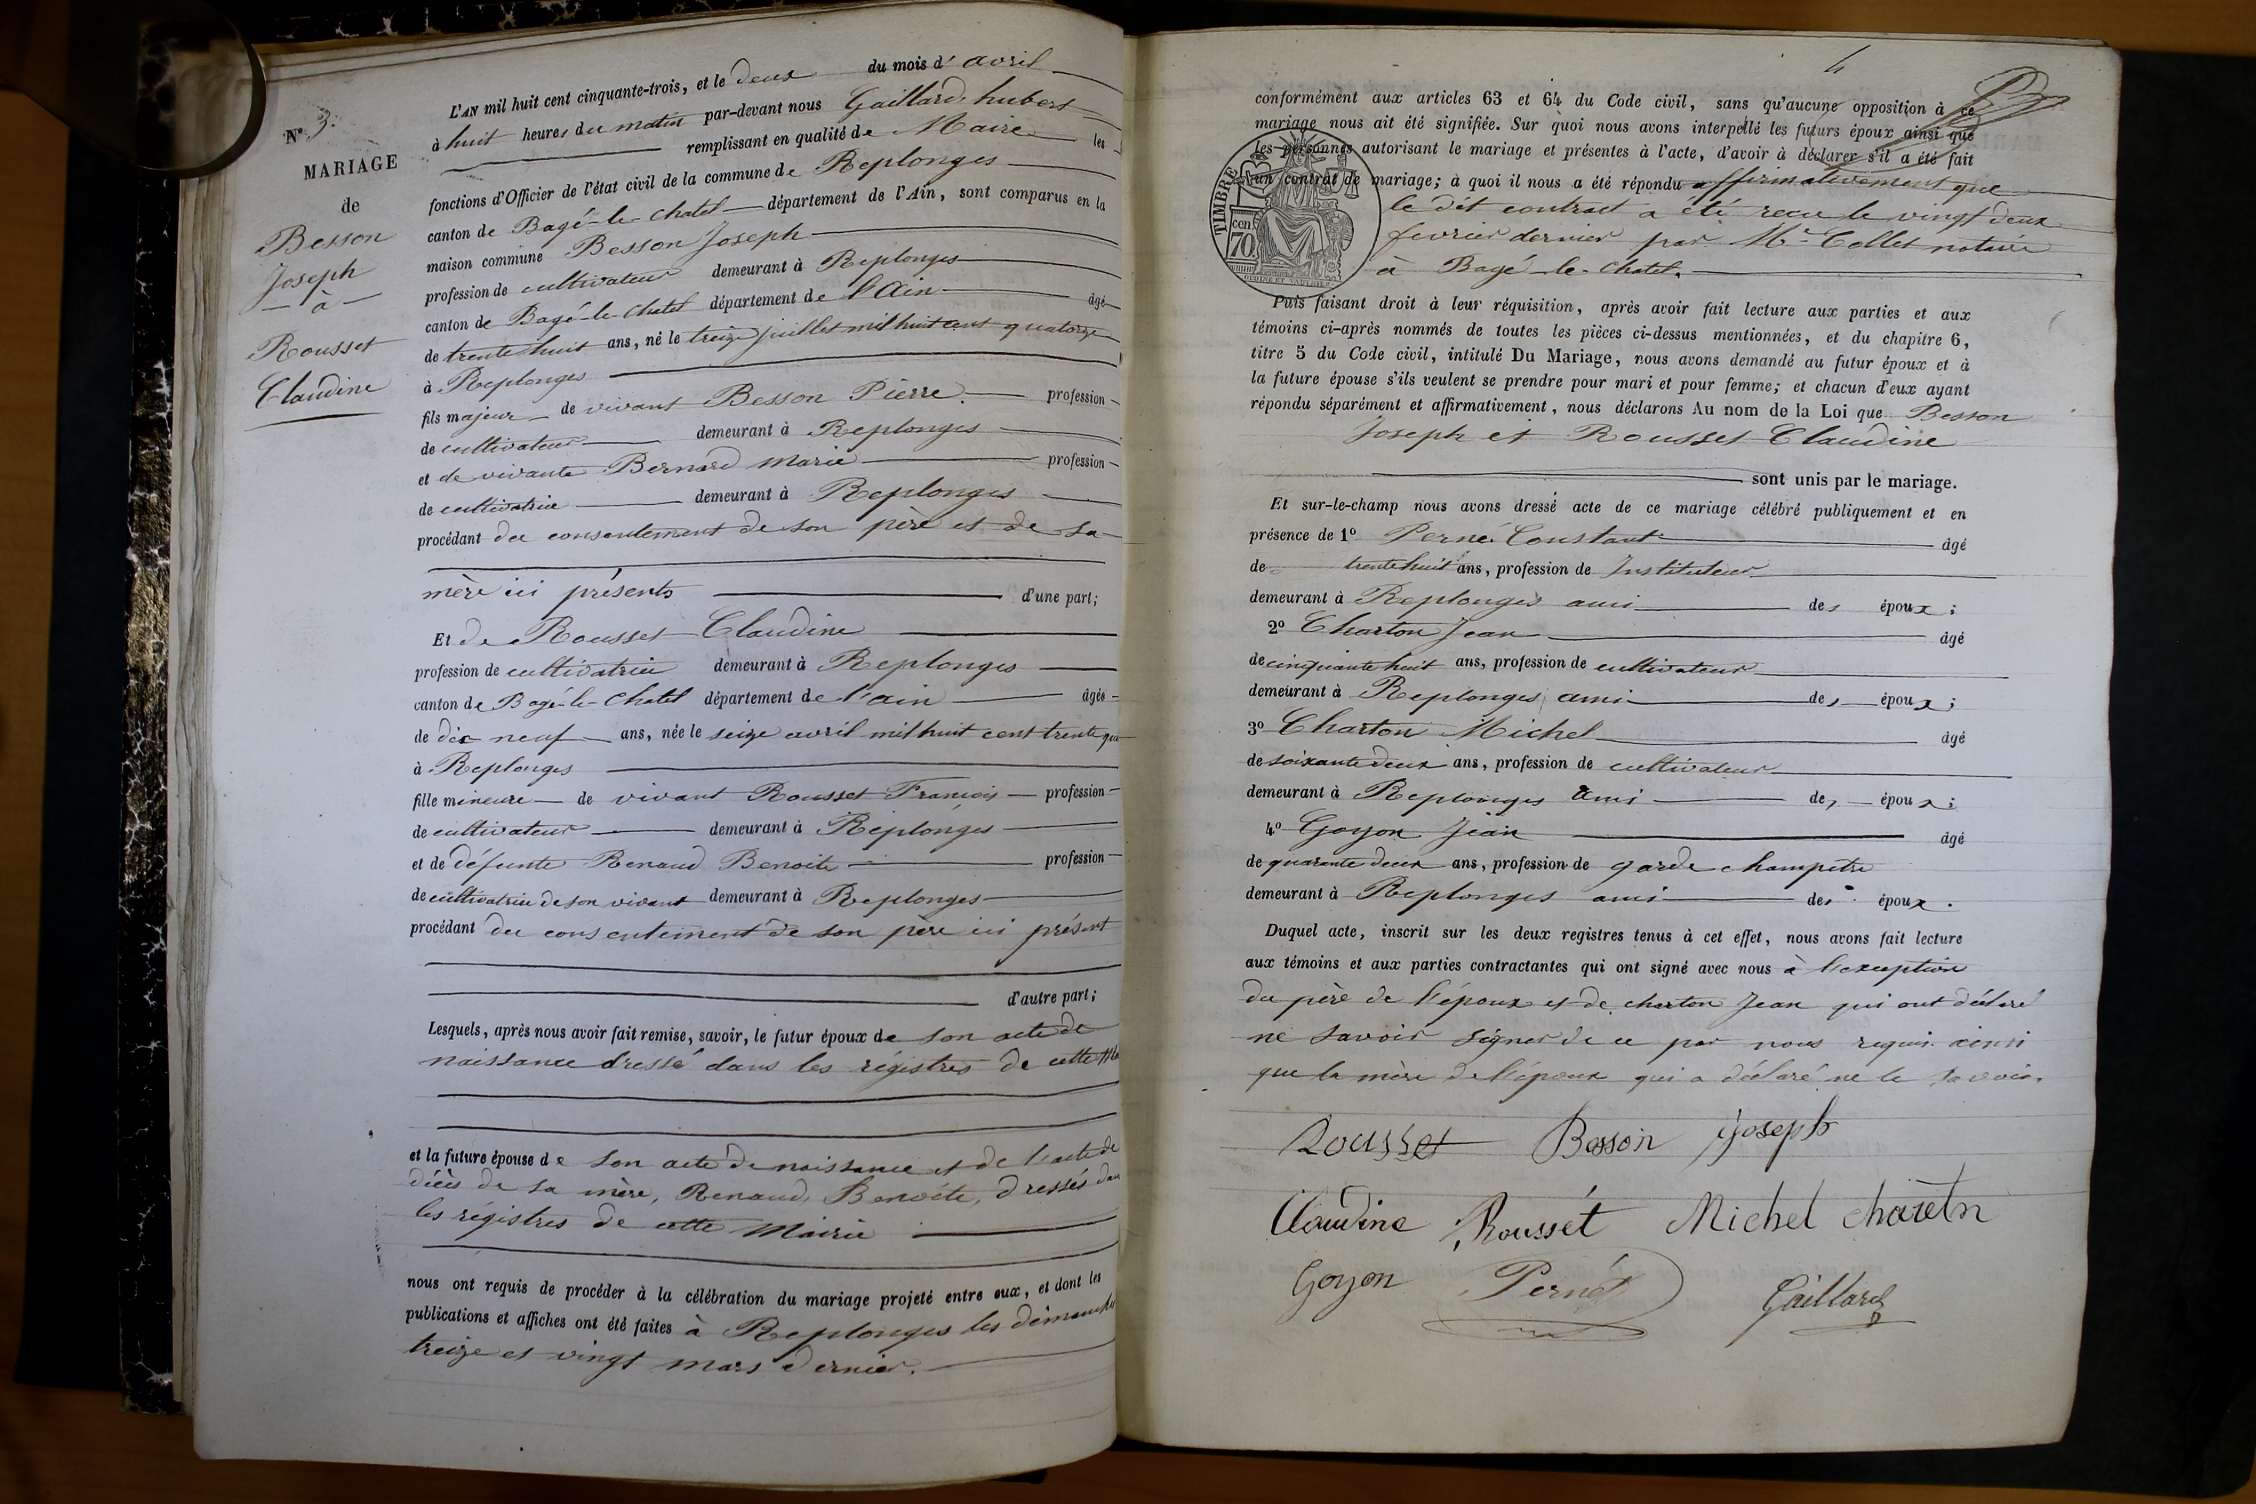 N° 3.
MARIAGE
de
Besson
Joseph
— à —
Rousset
Claudine
L'AN mil huit cent cinquante-trois, et le deux du mois d' avril
à huit heures du matin par-devant nous Gaillard hubert
remplissant en qualité de Maire les
fonctions d'Officier de l'état civil de la commune de Replonges
canton de Bagé-le-chatel département de l'Ain, sont comparus en la
maison commune Besson Joseph
profession de cultivateur demeurant à Replonges
canton de Bagé-le-chatel département de l'Ain âgé
de trente huit ans, né le treize juillet mil huit cent quatorze
à Replonges
fils majeur de vivant Besson Pierre. profession
de cultivateur demeurant à Replonges
et de vivante Bernard Marie profession
de cultivatrice demeurant à Replonges
procédant du consentement de son père et de sa
mère ici présents d'une part;
Et de Rousset Claudine
profession de cultivatrice demeurant à Replonges
canton de Bagé-le-Chatel département de l'ain âgée
de dix neuf ans, née le seize avril mil huit cent trente qua
à Replonges
fille mineure de vivant Rousset François profession
de cultivateur demeurant à Replonges
et de défunte Renaud Benoite profession
de cultivatrice de son vivant demeurant à Replonges
procédant du consentement de son père ici présent
d'autre part;
Lesquels, après nous avoir fait remise, savoir, le futur époux de son acte de
naissance dressé dans les régistres de cette
et la future épouse de son acte de naissance et de l'acte de
décès de sa mère, Renaud, Benoite, dressés dans
les régistres de cette Mairie
nous ont requis de procéder à la célébration du mariage projeté entre eux, et dont les
publications et affiches ont été faites à Replonges les dimanches
treize et vingt mars dernier.
4
conformément aux articles 63 et 64 du Code civil, sans qu'aucune opposition à ce
mariage nous ait été signifiée. Sur quoi nous avons interpellé les futurs époux ainsi que
les personnes autorisant le mariage et présentes à l'acte, d'avoir à déclarer s'il a été fait
un contrat de mariage; à quoi il nous a été répondu affirmativement que
le dit contract a été recu le vingt deux
fevrier dernier par Mr Collet notaire
à Bagé-le-Chatel.
TIMBRE
70 cen.
Puis faisant droit à leur réquisition, après avoir fait lecture aux parties et aux
témoins ci-après nommés de toutes les pièces ci-dessus mentionnées, et du chapitre 6,
titre 5 du Code civil, intitulé Du Mariage, nous avons demandé au futur époux et à
la future épouse s'ils veulent se prendre pour mari et pour femme; et chacun d'eux ayant
répondu séparément et affirmativement, nous déclarons Au nom de la Loi que Besson
Joseph et Rousset Claudine
sont unis par le mariage.
Et sur-le-champ nous avons dressé acte de ce mariage célébré publiquement et en
présence de 1° Perné Constant âgé
de trente huit ans, profession de Instituteur
demeurant à Replonges ami des époux;
2° Charton Jean âgé
de cinquante huit ans, profession de cultivateur
demeurant à Replonges ami des époux;
3° Charton Michel âgé
de soixante deux ans, profession de cultivateur
demeurant à Replonges ami des époux;
4° Goyon Jean âgé
de quarante deux ans, profession de garde champetre
demeurant à Replonges ami des époux.
Duquel acte, inscrit sur les deux registres tenus à cet effet, nous avons fait lecture
aux témoins et aux parties contractantes qui ont signé avec nous à l'exception
du père de l'époux et de charton Jean qui ont déclaré
ne savoir signer de ce par nous requis ainsi
que la mère de l'époux qui a déclaré ne le savoir.
Rousset Besson Joseph
Claudine Rousset Michel
Goyon Perné Gaillard